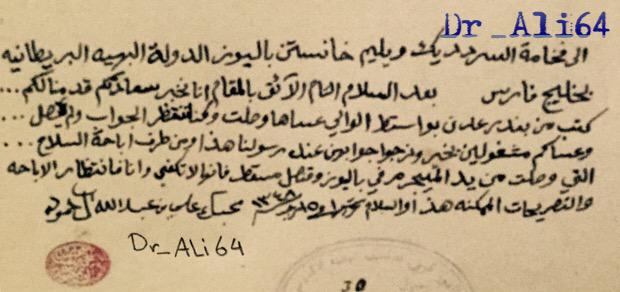 Dr_Ali64
الى فخامة السر دريك ويليم خانستن باليوز الدولة البهيه البريطانيه
بخليج فارس بعد السلام التام الآئق بالمقام انا نخبر سعادتكم قد منا لكم ...
كتب من بندر عدن بواسطة الوالي عساها وصلت وكنا ننتظر الجواب ولم يحصل ...
وعساكم مشغولين بخير ونرجوا جوابين عند رسولنا هذا ومن طرف اباحة السلاح ...
التي وصلت من يد الميجر مرفي باليوز وقنصل مسقط فانها لا تكفي وانا فانتظار الاباحه
والتصريحات الممكنه هذا والسلام ١٣٤٨ محبك علي بن عبدالله آل حمود
Dr_ALi64
30